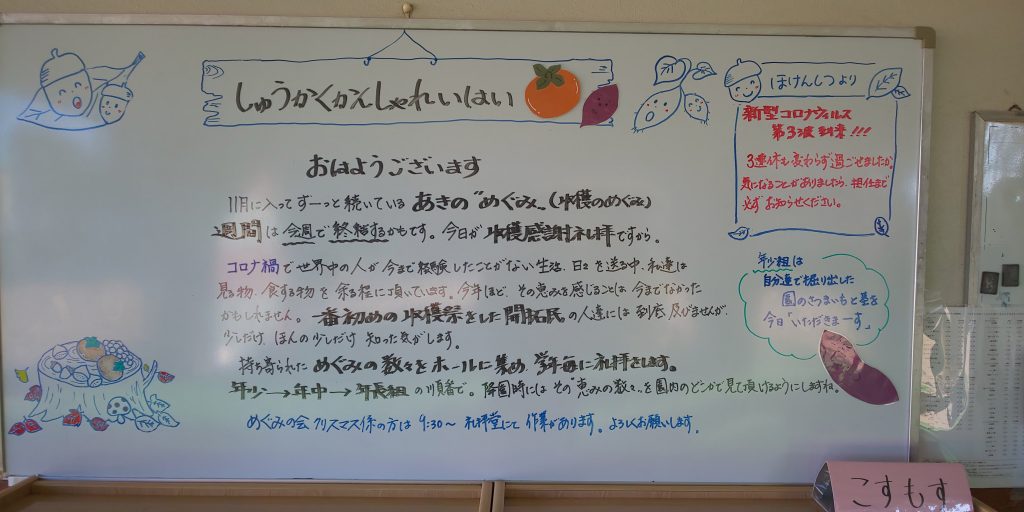 しゅうかくかんしゃれいはい
おはようございます
11月に入ってずーっと続いている あきの〝めぐみ〟(収穫のめぐみ)
週間は今週で終緒するかもです。今日が収穫感謝礼拝ですから。
コロナ禍で世界中の人が今まで経験したことがない生活、日々を送る中、私達は
見る物、食する物を余る程に頂いています。今年ほど、その恵みを感じることは今までなかった
かもしれません。一番初めの収穫祭をした開拓民の人達には到底及びませんが、
少しだけ、ほんの少しだけ知った気がします。
持ち寄られためぐみの数々をホールに集め、学年毎に礼拝をします。
年少→年中→年長組の順番で。降園時にはその〝恵みの数々〟を園内のどこかで見て頂けるようにしますね。
めぐみの会クリスマス係の方は 9:30〜 礼拝堂にて 作業があります。よろしくお願いします。
ほけんしつより
新型コロナウィルス
第3波到来!!!
3連休も変わらず過ごせましたか。
気になることがありましたら、担任まで
必ずお知らせください。
年少組は
自分達で掘り出した
園のさつまいもと葉を
今日「いただきまーす」
こすもす